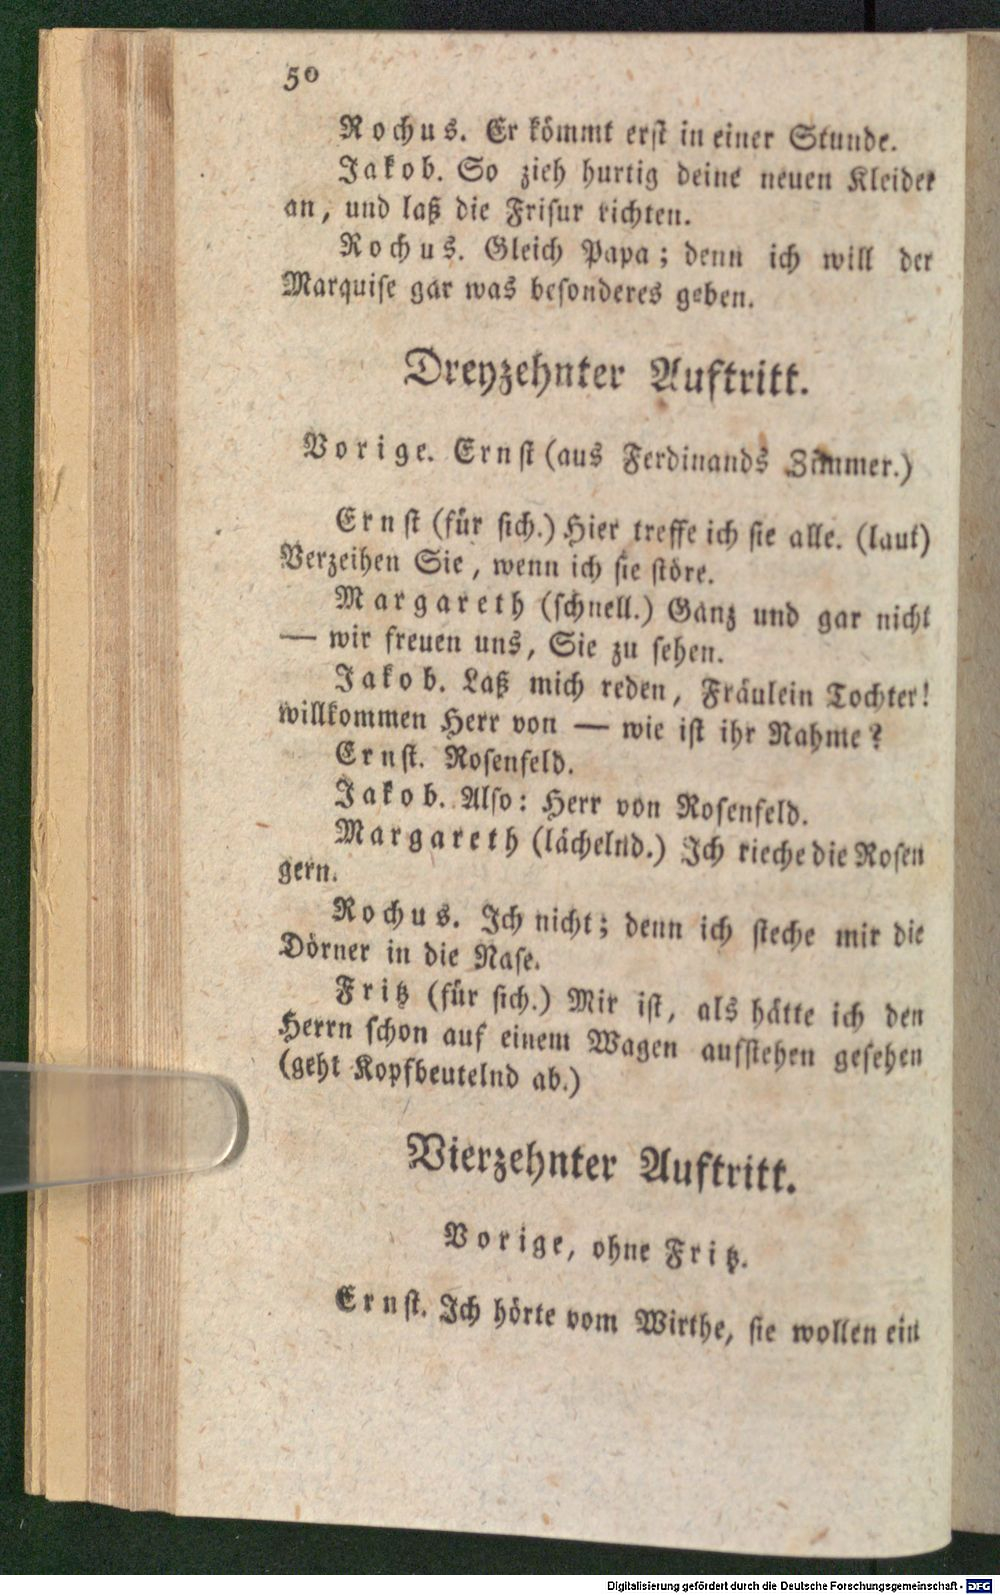 50
Rochus. Er kömmt erst in einer Stunde.
Jakob. So zieh hurtig deine neuen Kleider
an, und laß die Frisur richten.
Rochus. Gleich Papa; denn ich will der
Marquise gar was besonderes geben.
Dreyzehnter Auftritt.
Vorige. Ernst (aus Ferdinands Zimmer.)
Ernst (für sich.) Hier treffe ich sie alle. (laut)
Verzeihen Sie, wenn ich sie störe.
Margareth (schnell.) Ganz und gar nicht
— wir freuen uns, Sie zu sehen.
Jakob. Laß mich reden, Fräulein Tochter!
willkommen Herr von — wie ist ihr Nahme?
Ernst. Rosenfeld.
Jakob. Also: Herr von Rosenfeld.
Margareth (lächelnd.) Ich rieche die Rosen
gern.
Rochus. Ich nicht; denn ich steche mir die
Dörner in die Nase.
Fritz (für sich.) Mir ist, als hätte ich den
Herrn schon auf einem Wagen aufstehen gesehen
(geht Kopfbeutelnd ab.)
Vierzehnter Auftritt.
Vorige, ohne Fritz.
Ernst. Ich hörte vom Wirthe, sie wollen ein
Digitalisierung gefördert durch die Deutsche Forschungsgemeinschaft - DFG